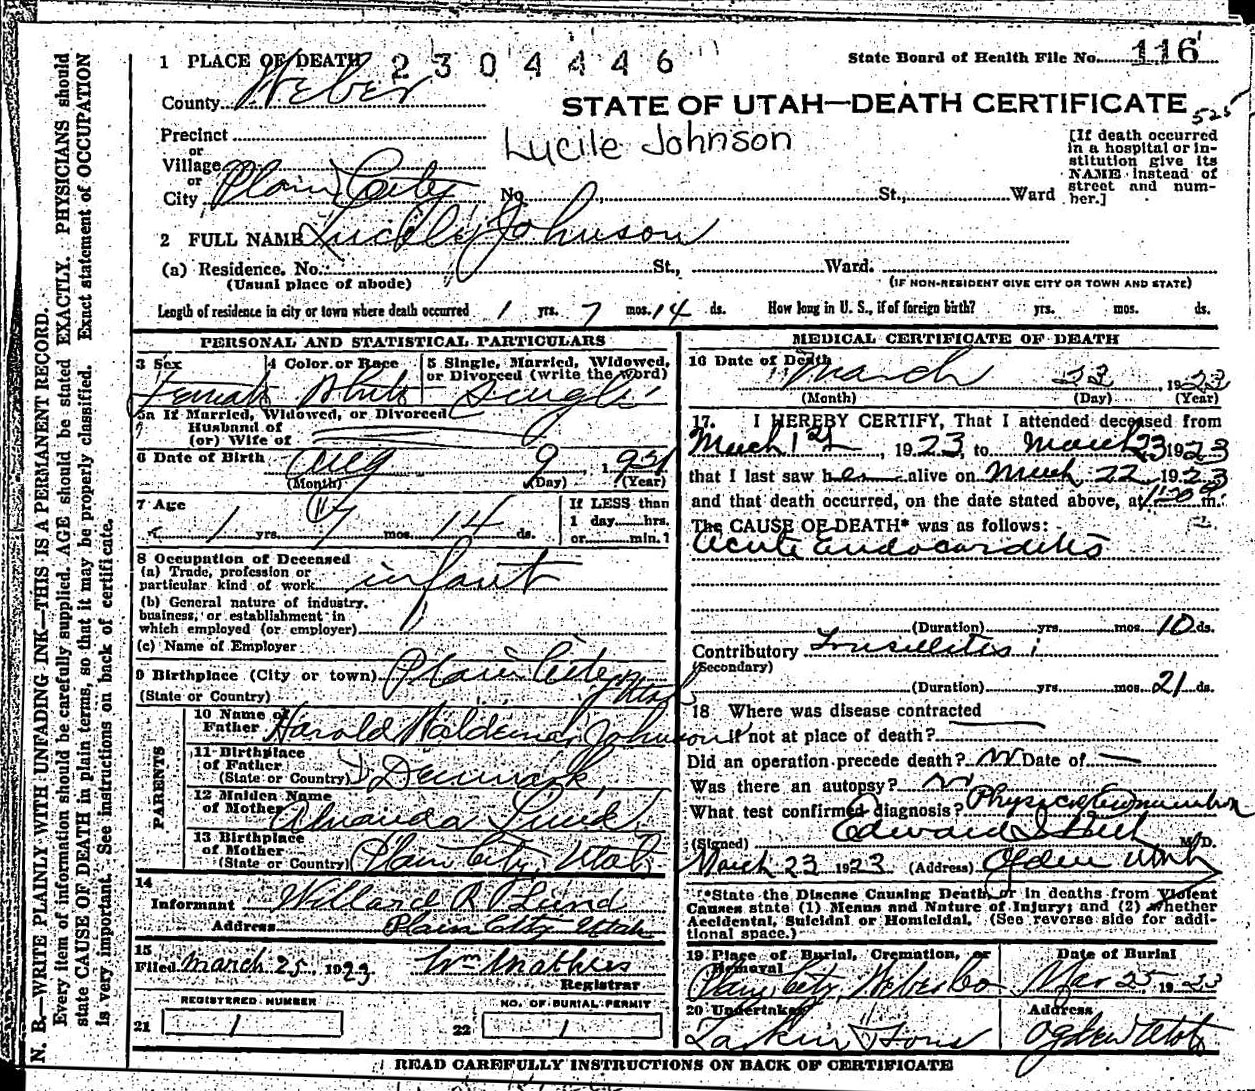 N. B.—WRITE PLAINLY WITH UNFADING INK—THIS IS A PERMANENT RECORD.
Every item of information should be carefully supplied. AGE should be stated EXACTLY. PHYSICIANS should
state CAUSE OF DEATH in plain terms, so that it may be properly classified. Exact statement of OCCUPATION
is very important. See instructions on back of certificate.
1 PLACE OF DEATH 2304446
State Board of Health File No. 116
County Weber
STATE OF UTAH—DEATH CERTIFICATE 525
Precinct
or
Village
or
City Plain City No. St., Ward
Lucile Johnson
[If death occurred
in a hospital or in-
stitution give its
NAME instead of
street and num-
ber.]
2 FULL NAME Johnson
(a) Residence. No. St., Ward.
(Usual place of abode) (IF NON-RESIDENT GIVE CITY OR TOWN AND STATE)
Length of residence in city or town where death occurred 1 yrs. 7 mos. 14 ds. How long in U. S., if of foreign birth? yrs. mos. ds.
PERSONAL AND STATISTICAL PARTICULARS
3 Sex 4 Color or Race 5 Single, Married, Widowed,
or Divorced (write the word)
Female White Single
5a If Married, Widowed, or Divorced
Husband of
(or) Wife of
6 Date of Birth Aug 9, 1921
(Month) (Day) (Year)
7 Age
1 yrs. 7 mos. 14 ds.
If LESS than
1 day hrs.
or min.?
8 Occupation of Deceased
(a) Trade, profession or
particular kind of work infant
(b) General nature of industry,
business, or establishment in
which employed (or employer)
(c) Name of Employer
9 Birthplace (City or town) Plain City Utah
(State or Country)
PARENTS
10 Name of
Father Harold Waldemar Johnson
11 Birthplace
of Father
(State or Country) Denmark
12 Maiden Name
of Mother Amanda Lund
13 Birthplace
of Mother
(State or Country) Plain City, Utah
14
Informant Willard R Lund
Address Plain City Utah
15
Filed March 25, 1923 Wm Mathies
Registrar
REGISTERED NUMBER NO. OF BURIAL PERMIT
21 1 22 1
MEDICAL CERTIFICATE OF DEATH
16 Date of Death
March 23, 1923
(Month) (Day) (Year)
17. I HEREBY CERTIFY, That I attended deceased from
March 1st, 1923, to March 23 1923
that I last saw her alive on March 22, 1923
and that death occurred, on the date stated above, at m.
The CAUSE OF DEATH* was as follows:
Acute Endocarditis
(Duration) yrs. mos. 10 ds.
Contributory Tonsillitis
(Secondary)
(Duration) yrs. mos. 21 ds.
18 Where was disease contracted
if not at place of death?
Did an operation precede death? no Date of
Was there an autopsy? no
What test confirmed diagnosis? Physical Examination
(Signed) Edward I M.D.
March 23 1923 (Address) Ogden Utah
*State the Disease Causing Death, or in deaths from Violent
Causes state (1) Means and Nature of Injury; and (2) whether
Accidental, Suicidal or Homicidal. (See reverse side for addi-
tional space.)
19 Place of Burial, Cremation, or
Removal Date of Burial
Plain City, Weber Co Mar 25 1923
20 Undertaker Address
Larkin & Sons Ogden Utah
READ CAREFULLY INSTRUCTIONS ON BACK OF CERTIFICATE